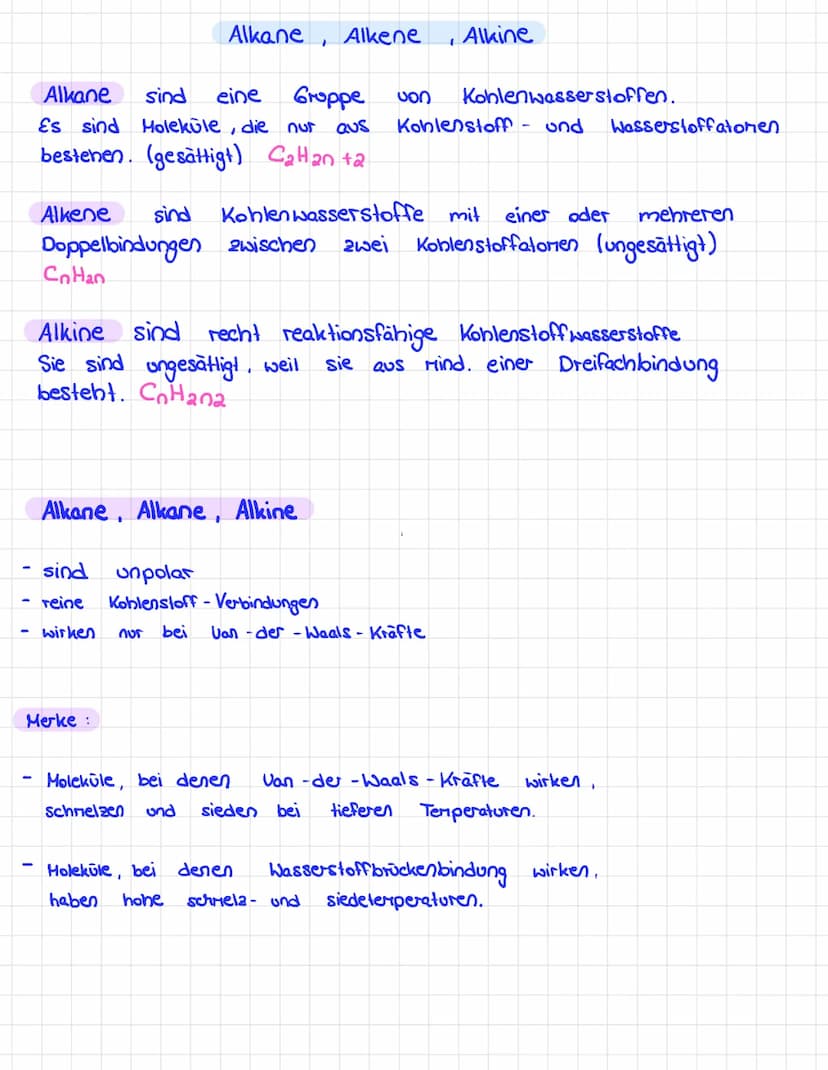 Alkane , Alkene , Alkine
Alkane sind eine Gruppe von Kohlenwasserstoffen.
Es sind Moleküle, die nur aus Kohlenstoff - und Wasserstoffatomen
bestehen. (gesättigt) C2H2n +2
Alkene sind Kohlenwasserstoffe mit einer oder mehreren
Doppelbindungen zwischen zwei Kohlenstoffatomen (ungesättigt)
CnH2n
Alkine sind recht reaktionsfähige Kohlenstoffwasserstoffe
Sie sind ungesättigt, weil sie aus mind. einer Dreifachbindung
besteht. CnH2n2
Alkane, Alkane, Alkine
- sind unpolar
- reine Kohlenstoff - Verbindungen
- wirken nur bei Van - der - Waals - Kräfte
Merke :
- Moleküle, bei denen Van - der - Waals - Kräfte wirken,
schmelzen und sieden bei tieferen Temperaturen.
- Moleküle, bei denen Wasserstoffbrückenbindung wirken,
haben hohe schmelz- und siedetemperaturen.